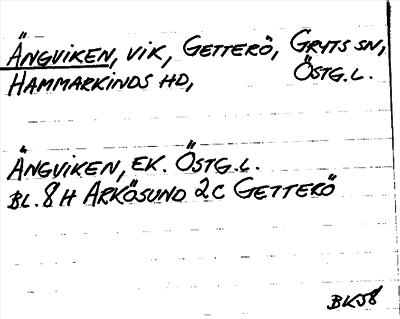 ÄNGVIKEN, VIK, GETTERÖ, GRYTS SN,
HAMMARKINDS HD, ÖSTG.L.
ÄNGVIKEN, EK. ÖSTG.L.
BL. 8H ARKÖSUND 2C GETTERÖ
BK58